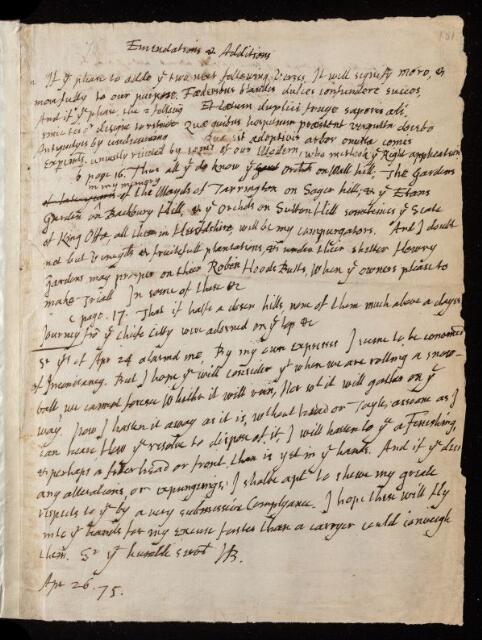 181
Emendations & Additions
If yu please to adde ye two next following verses, It will signify more, &
morfully to our purpose. Foederibus blandes dulces confundere succos
And if yu please, the 2 following Et laetum duplici fruge saporis ali,
designe to Quae quibus hospitium praestent virgulta docebo
by Quae sit adoptivis arbor onusta comis
Expients, usually recited by some of our Modern, who mistook ye Right application
b page 16. Thus all yt do know, ye orchard on Wall hill; The Gardens
in my memory
of the Mayds of Tarrington on Sager hill; & ye Evans
Garden on Backbury Hill, & ye Orchds on Sutton Hill sometimes ye Seate
of King Offa, all then in Herefdshire, will be my compurgators. And I doubt
not but Vineyds & fruitfull plantations, & under their shelter flowry
Gardens may prosper on those Robin Hoods Butts, When ye owners please to
make Triall. In some of these &c
c page. 17. That if halfe a dozen hills, none of them much above a dayes
Journey fro ye Chiefe Citty were adorned on ye top &c
Sr yrs of Apr 24 alarmd me. By my own expresses I seeme to be convinced
of Inconstancy. But I hope yu will consider yt when we are rolling a snow-
ball we cannot foresee Whether it will ruin, Nor wt it will gather on ye
way. Now I hasten it away as it is, without head or Tayle, as soone as I
can heare How yu resolve to dispose of it, I will hasten to yu a Finishing,
& perhaps a fitter head or front, than is yet in yr hands. And if yu desire
any alterations, or expungings, I shalbe apt to shewe my greate
respects to yu by a very submissive Complyance. I hope these will fly
into yr hands for my excuse faster than a carryer could conveigh
them. Sr yr humble servt JB.
Apr 26. 75.